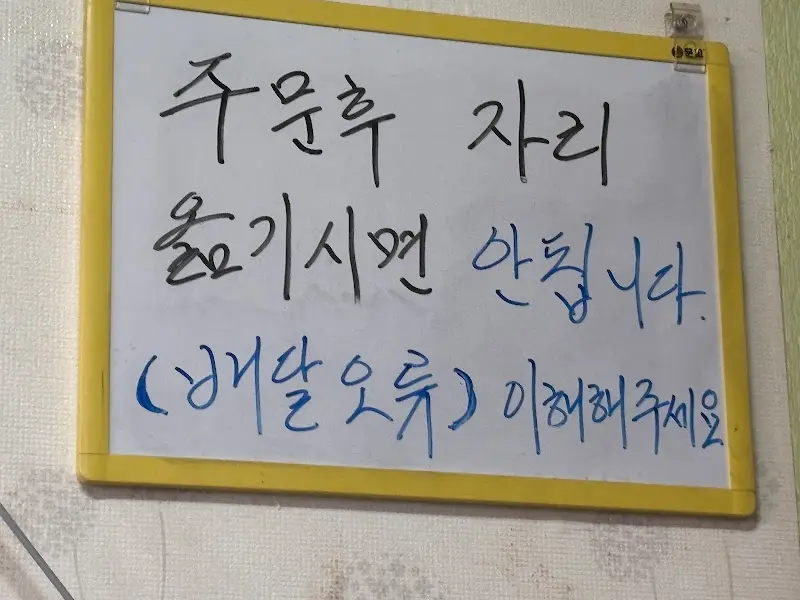 주문후 자리
옮기시면 안됩니다.
(배달 오류) 이해해주세요